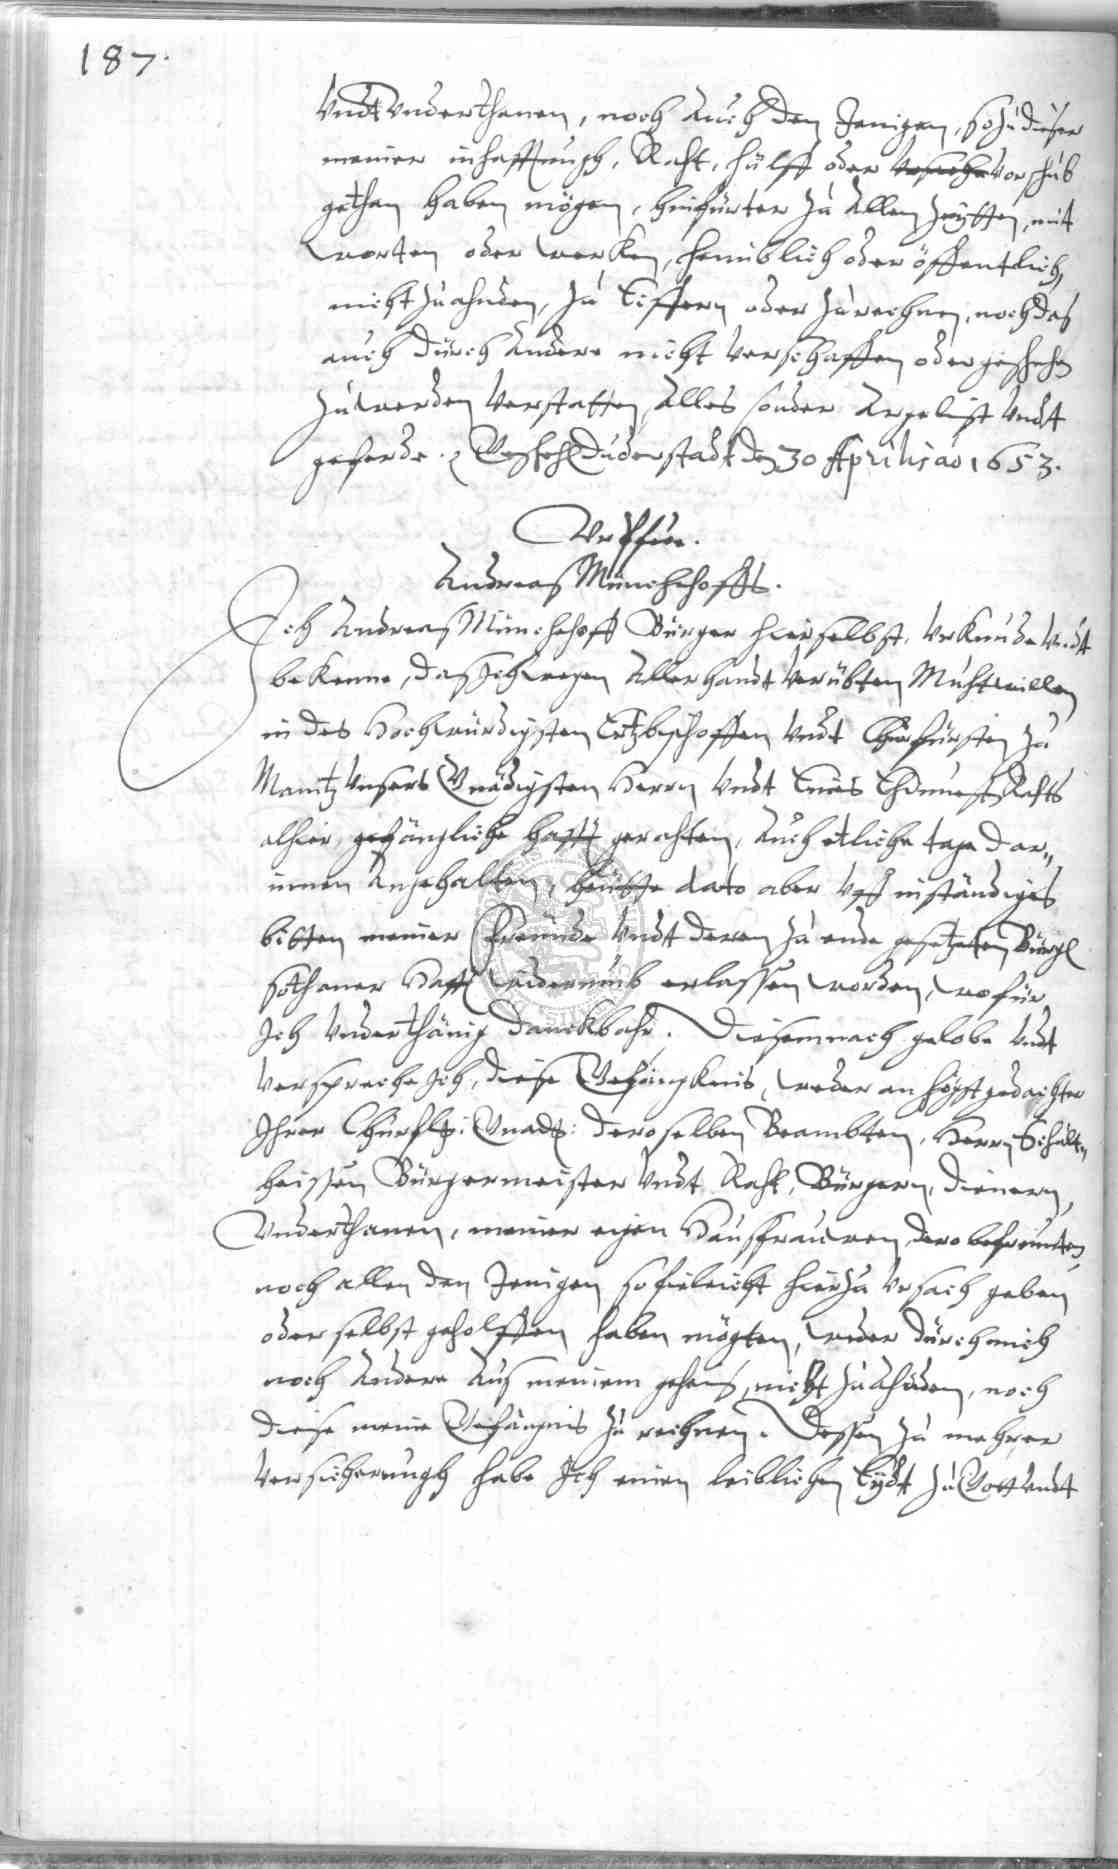 187.
Vndt Vnderthanen, noch Auch den Jenigen, so zu dieser
meiner inhafftungh, Raht, hülff oder Vorschub
gethan haben mögen, hinfürter zu Allen Zeytten, mit
worten oder werken, heimblich oder öffentlich,
nicht zu ahnden, zu Eiffern oder zu rechnen, noch das
auch durch Andere nicht Verschaffen oder geschehen
zu werden Verstatten, Alles sonder Argelist Vndt
geferde. Duderstadt den 30 Aprilis ao 1653.
Vrphede.
Andreas Münchehoffs.
Ich Andreas Münchehoff Bürger hierselbst, Vrkunde Vndt
bekenne, das Ich wegen Allerhandt Verübten Muhtwillen
in des Hochwürdigsten Ertzbischoffen Vndt Churfürsten zu
Maintz Vnsers Gnädigsten Herrn Vndt Eines Rahts
alhier gefängliche hafft gerahten, Auch etliche tage dar„
innen Angehalten, heütte dato aber Vff inständiges
bitten meiner freünde Vndt deren zu ende gesetzeten Bürgl
sothaner Hafft widerümb erlassen worden, wofür
Ich Vnderthänig danckbahr. Diesemnach gelobe Vndt
Verspreche Ich, diese Gefängknis, weder an höchstgedachter
Ihrer Churfl: Gnadt: deroselben Beambten, Herrn Schult„
heissen Bürgermeister Vndt Raht, Bürgern, dienern,
Vnderthanen, meiner eigen Hausfrauwen, dero befreunten,
noch allen den Jenigen so hierzu Vrsach geben
oder selbst geholffen haben mögten, weder durch mich
noch Andere Aus meinem geheis, nicht zu Ahnden, noch
diese meine Gefängnis zu rechnen. Dessen zu mehrer
Versicherungh habe Ich einen leiblichen Eydt zu Gott Vndt